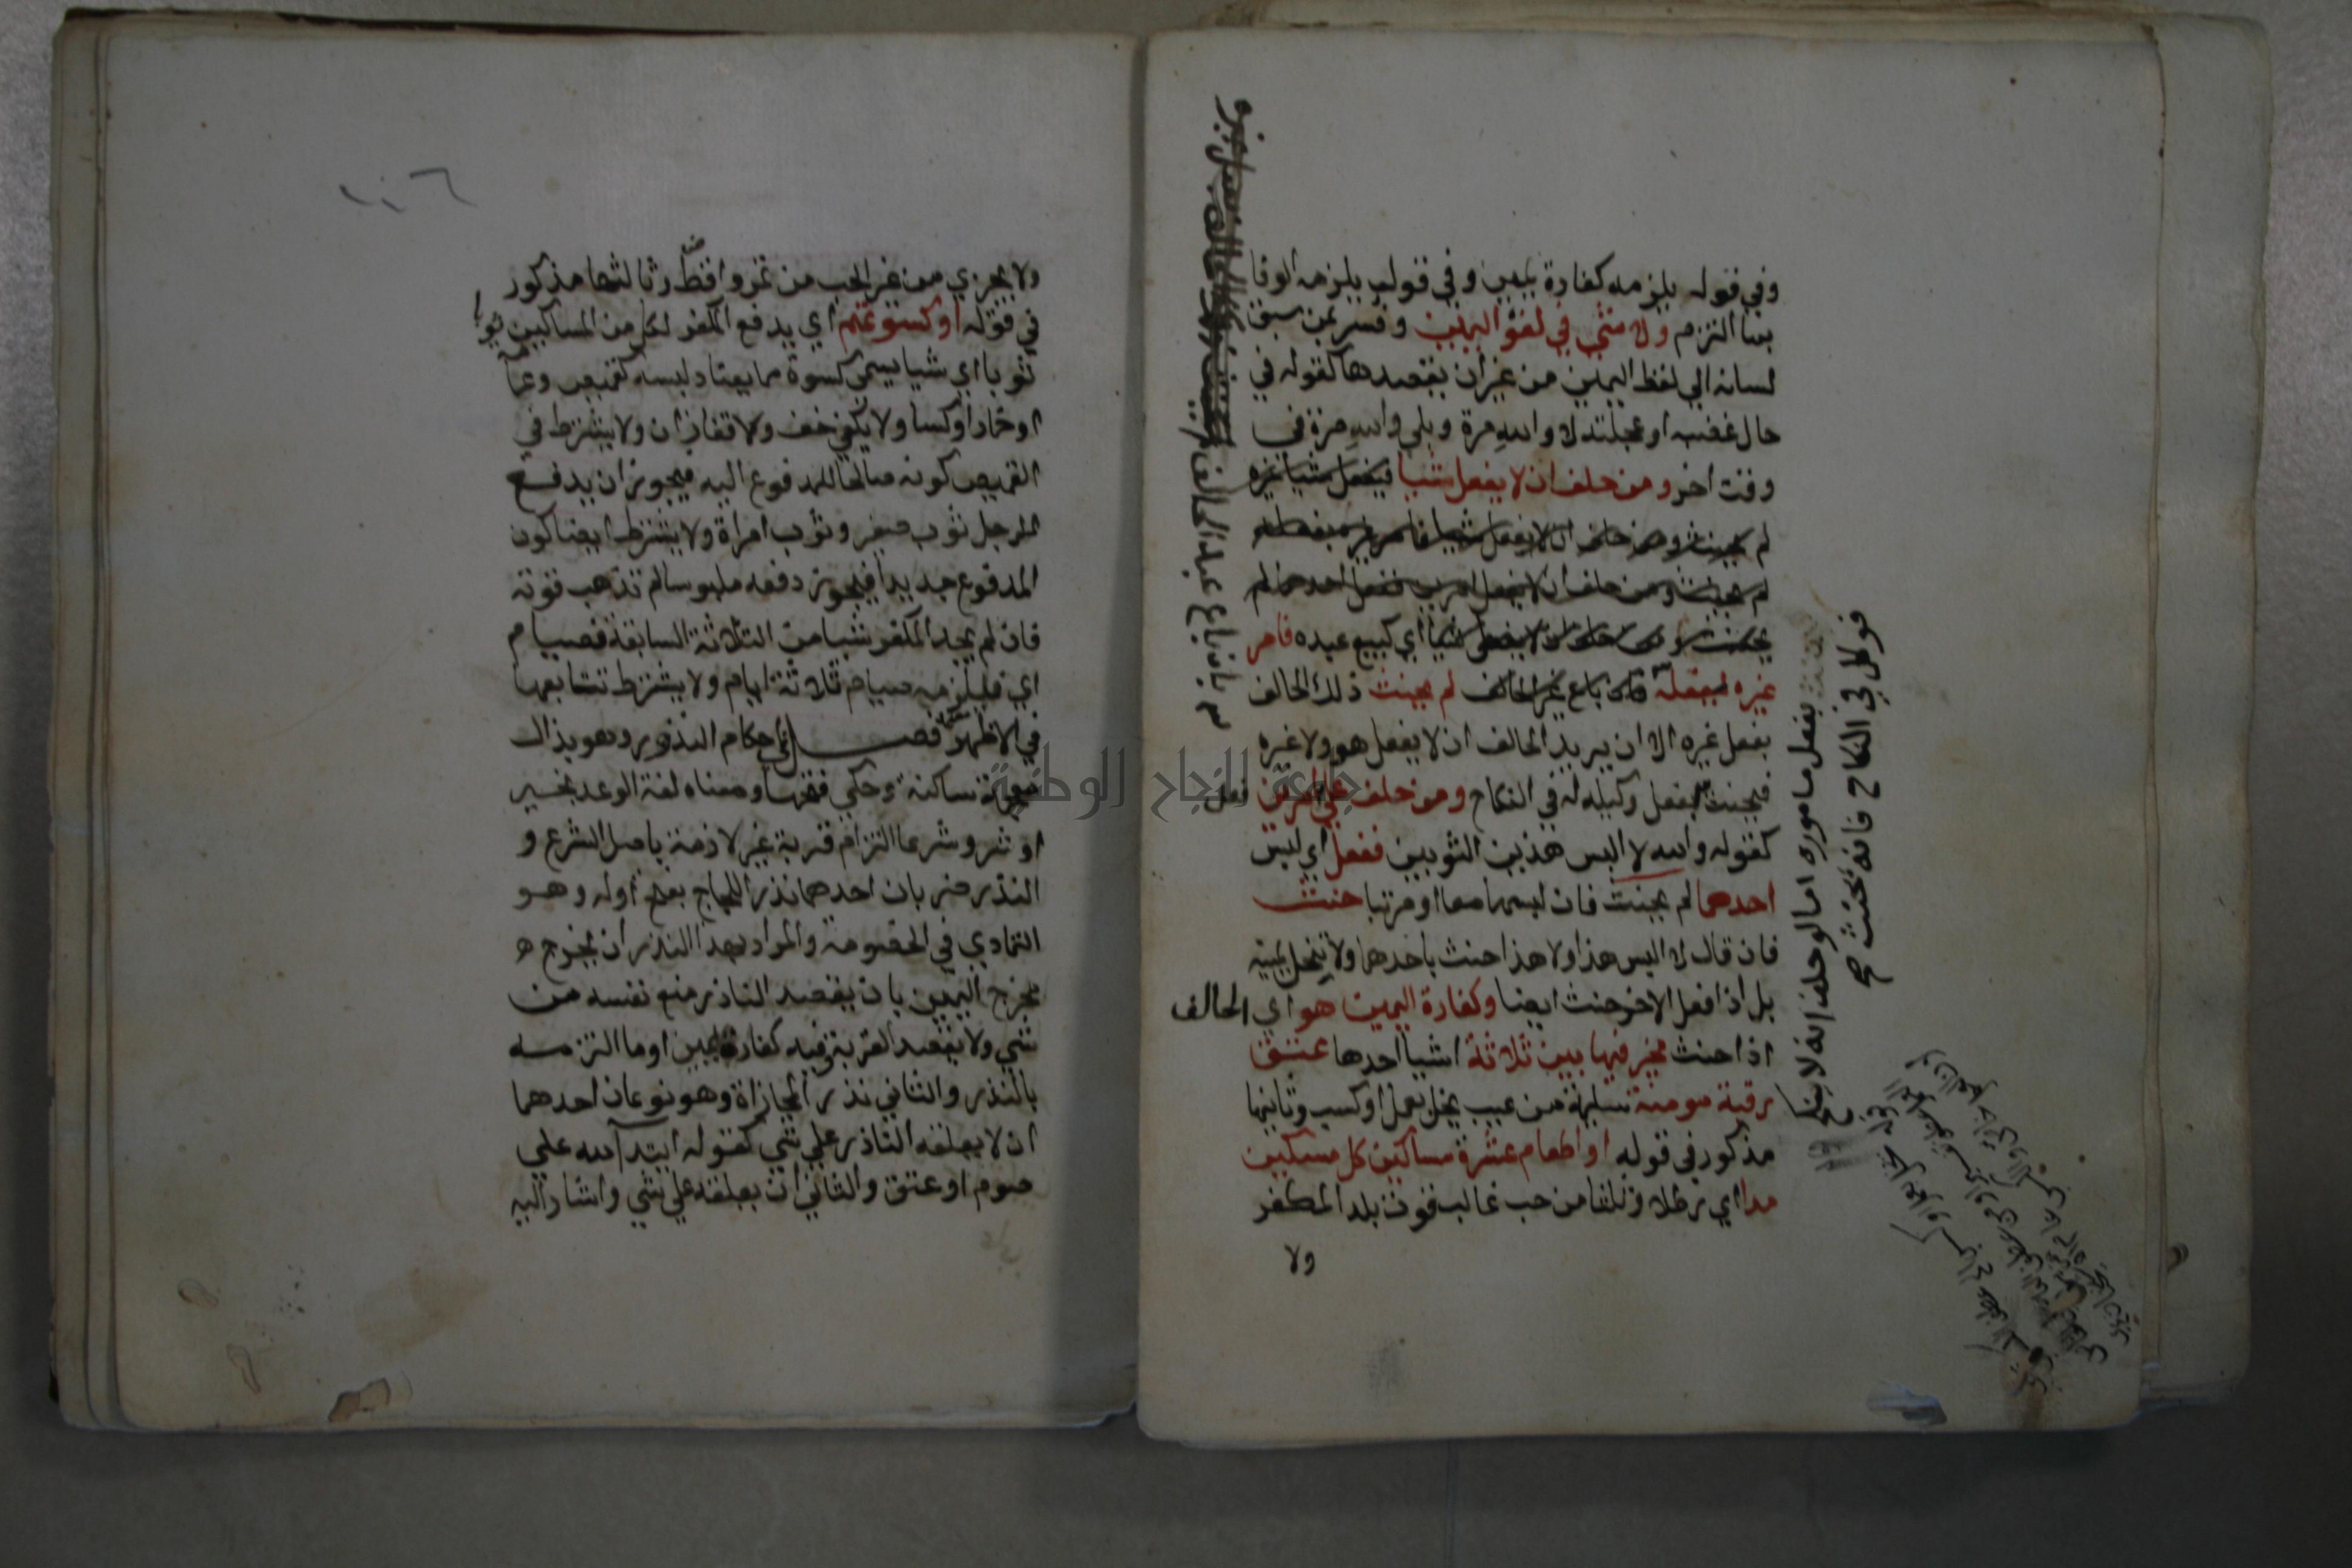 وفي قوله يلزمه كفارة يمين وفي قول يلزمه الوفا
بما التزم ولا شي في لغو اليمين وفسر بمن سبق
لسانه الي لفظ اليمين من غير ان يقصدها كقوله في
حال غضبه او عجلته لا والله مرة وبلي والله مرة في
وقت اخر ومن حلف ان لا يفعل شيا فيفعل شيا غيره
لم يحنث ومن حلف ان لا يفعل شيا فامر غيره بفعله
لم يحنث ومن حلف ان لا يفعل امرين ففعل احدهما لم
يحنث ومن حلف ان لا يفعل شيا اي كبيع عبده فامر
غيره بفعله فان باع غير الحالف لم يحنث ذلك الحالف
بفعل غيره الا ان يريد الحالف ان لا يفعل هو ولا غيره
فيحنث بفعل وكيله له في النكاح ومن حلف علي امرين فعل
كقوله والله لا البس هذين الثوبين ففعل اي لبس
احدهما لم يحنث فان لبسهما معا او مرتبا حنث
فان قال لا البس هذا ولا هذا حنث باحدهما ولا تنحل يمينه
بل اذا فعل الاخر حنث ايضا وكفارة اليمين هو اي الحالف
اذا حنث مخير فيها بين ثلاثة اشيا احدها عتق
رقبة مومنة سليمة من عيب يخل بعمل او كسب وثانيها
مذكور في قوله او اطعام عشرة مساكين كل مسكين
مدا اي رطلا وثلثا من حب غالب قوت بلد المكفر
ولا
بفعل ماموره اما لو حلف انه لا ينكح
فوكل في النكاح فانه يحنث صح
بان باع عبد الحالف
١٠٦
ولا يجزي من غير الحب من تمر واقط وثالثها مذكور
في قوله او كسوتهم اي يدفع المكفر لكل من المساكين ثوبا
ثوبا اي شيا يسمي كسوة مما يعتاد لبسه كقميص وعما
او خمار او كسا ولا يكفي خف ولا قفازان ولا يشترط في
القميص كونه صالحا للمدفوع اليه فيجوز ان يدفع
للرجل ثوب صغير وثوب امراة ولا يشترط ايضا كون
المدفوع جديدا فيجوز دفعه ملبوسا لم تذهب قوته
فان لم يجد المكفر شيا من الثلاثة السابقة فصيام
اي فيلزمه صيام ثلاثة ايام ولا يشترط تتابعها
في الاظهر فصل في احكام النذور وهو بذال
معجمة ساكنة وحكي فتحها ومعناه لغة الوعد بخير
او شر وشرعا التزام قربة غير لازمة باصل الشرع و
النذر ضربان احدهما نذر اللجاج بفتح اوله وهو
التمادي في الخصومة والمراد بهذا النذر ان يخرج
مخرج اليمين بان يقصد الناذر منع نفسه من
شي ولا يقصد القربة وفيه كفارة يمين او ما التزمه
بالنذر والثاني نذر المجازاة وهو نوعان احدهما
ان لا يعلقه الناذر علي شي كقوله ابتدا لله علي
صوم او عتق والثاني ان يعلقه علي شي واشار اليه
جامعة النجاح الوطنية